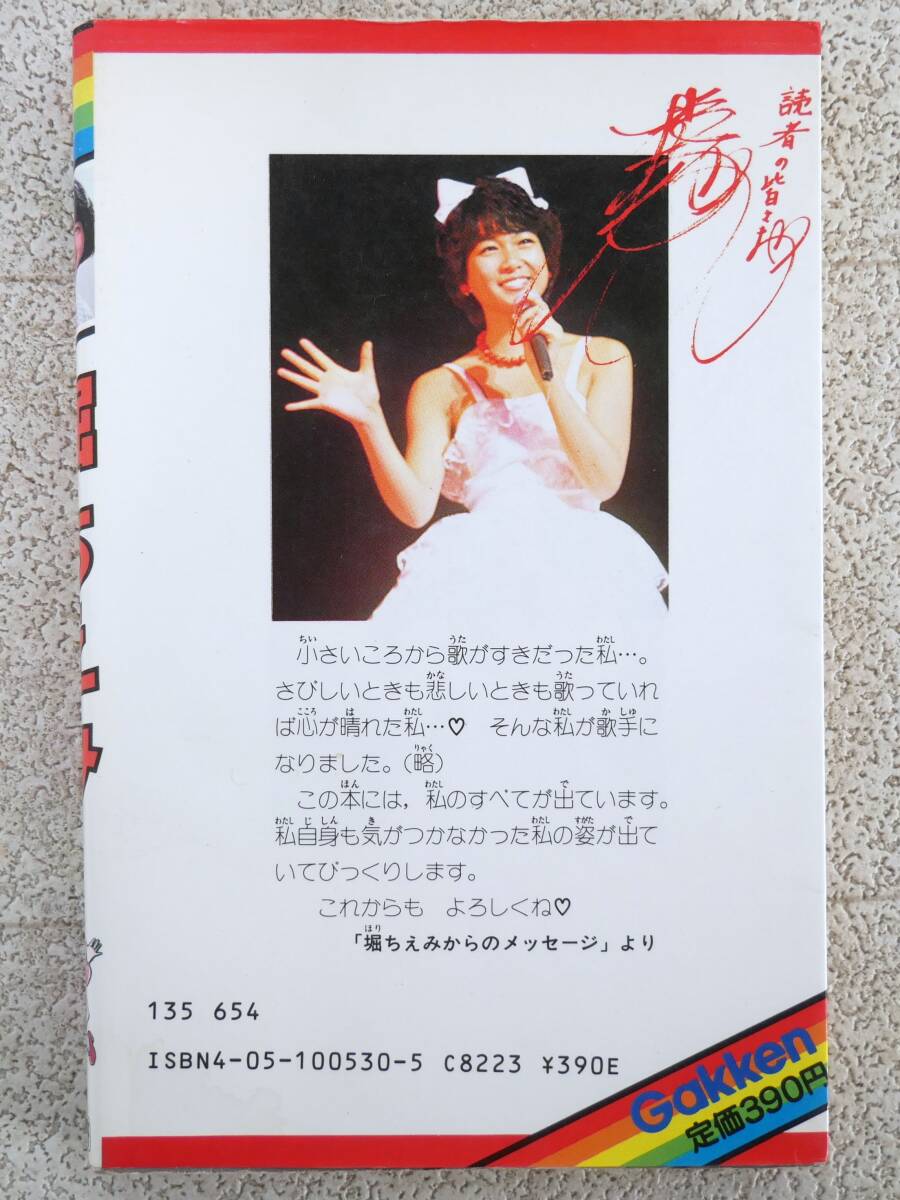 読者の皆さまへ
小さいころから歌がすきだった私…。
さびしいときも悲しいときも歌っていれ
ば心が晴れた私…♡　そんな私が歌手に
なりました。(略)
この本には，私のすべてが出ています。
私自身も気がつかなかった私の姿が出て
いてびっくりします。
これからも　よろしくね♡
「堀ちえみからのメッセージ」より
135 654
ISBN4-05-100530-5 C8223 ¥390E
Gakken
定価390円